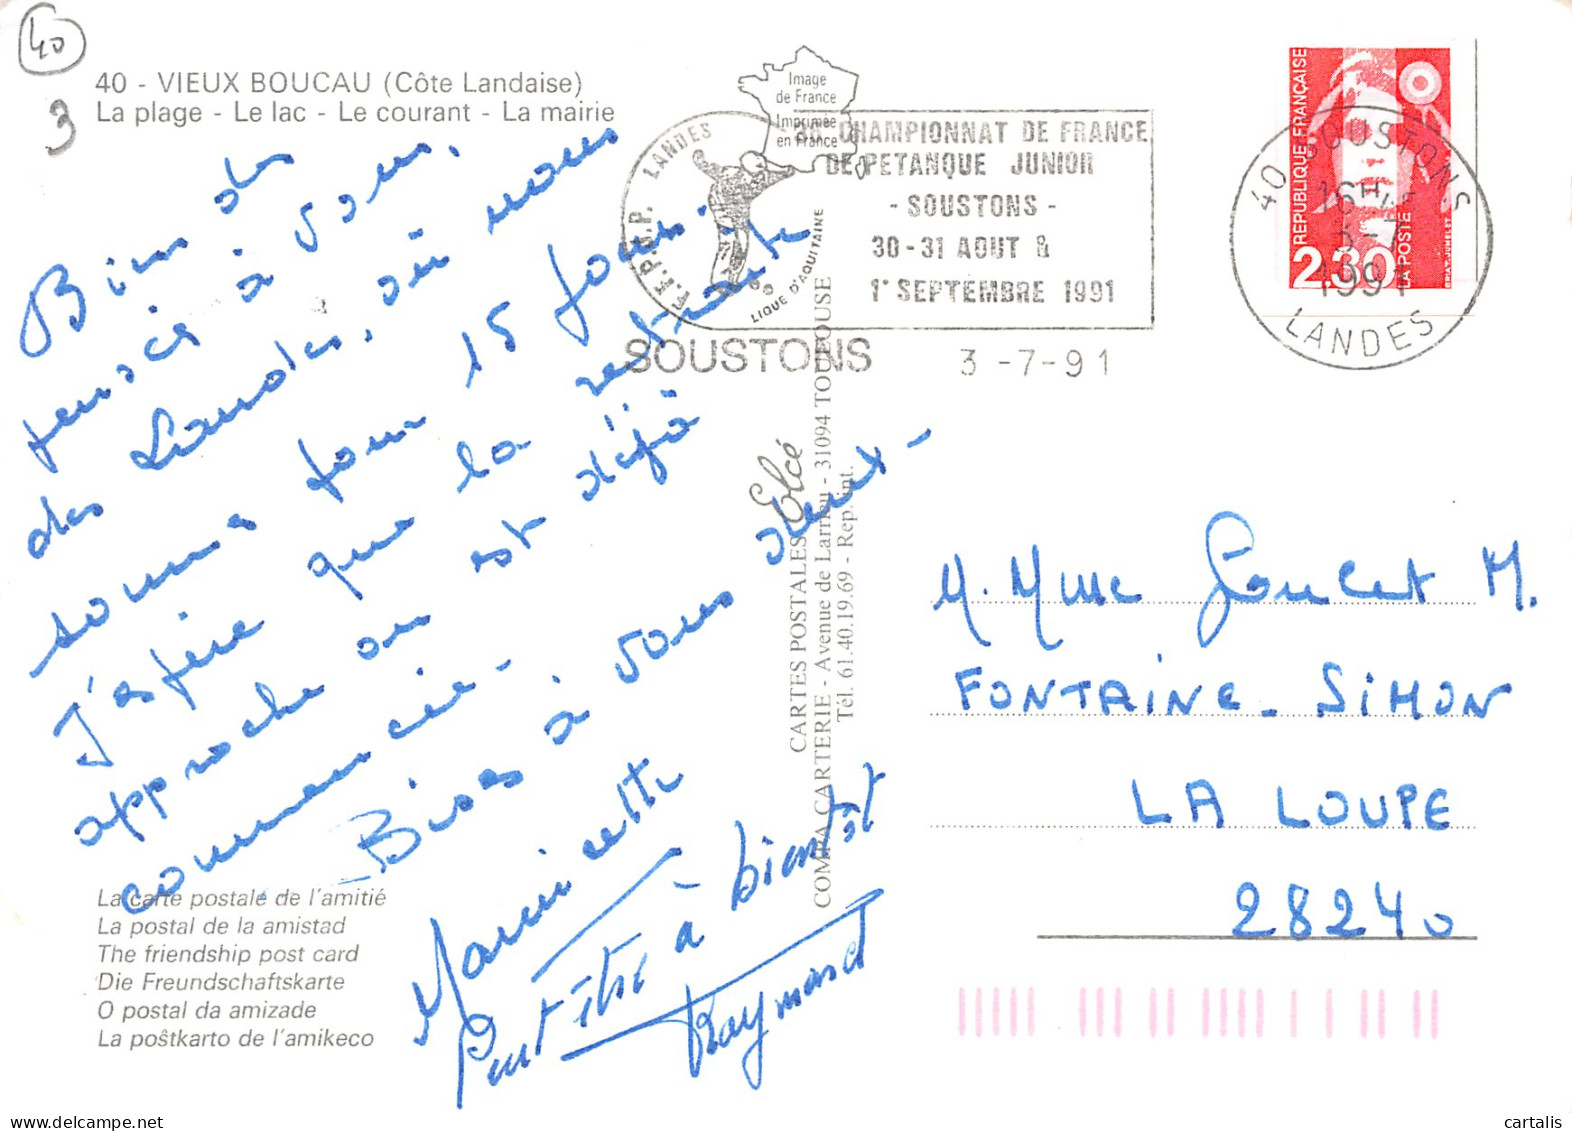 40
3
40 - VIEUX BOUCAU (Côte Landaise)
La plage - Le lac - Le courant - La mairie
Image
de France
Imprimée
en France
F.F.P.J.P. LANDES
LIGUE D'AQUITAINE
CHAMPIONNAT DE FRANCE
DE PETANQUE JUNIOR
- SOUSTONS -
30-31 AOUT &
1° SEPTEMBRE 1991
SOUSTONS
3 -7-91
REPUBLIQUE FRANÇAISE
2.30
LA POSTE
40 SOUSTONS
16H
3-7
1991
LANDES
Bien des
pensées à vous,
des Landes, où nous
sommes pour 15 jours.
J'espère que la retraite
approche ou est déjà
commencée -
Bises à vous deux -
Maricette
Peut être à bientôt
Raymond
CARTES POSTALES Elcé
COMPA CARTERIE - Avenue de Larrieu - 31094 TOULOUSE
Tél. 61.40.19.69 - Rep. int.
M. Mme Goulet M.
FONTAINE-SIMON
LA LOUPE
28240
La carte postale de l'amitié
La postal de la amistad
The friendship post card
Die Freundschaftskarte
O postal da amizade
La poŝtkarto de l'amikeco
cartalis